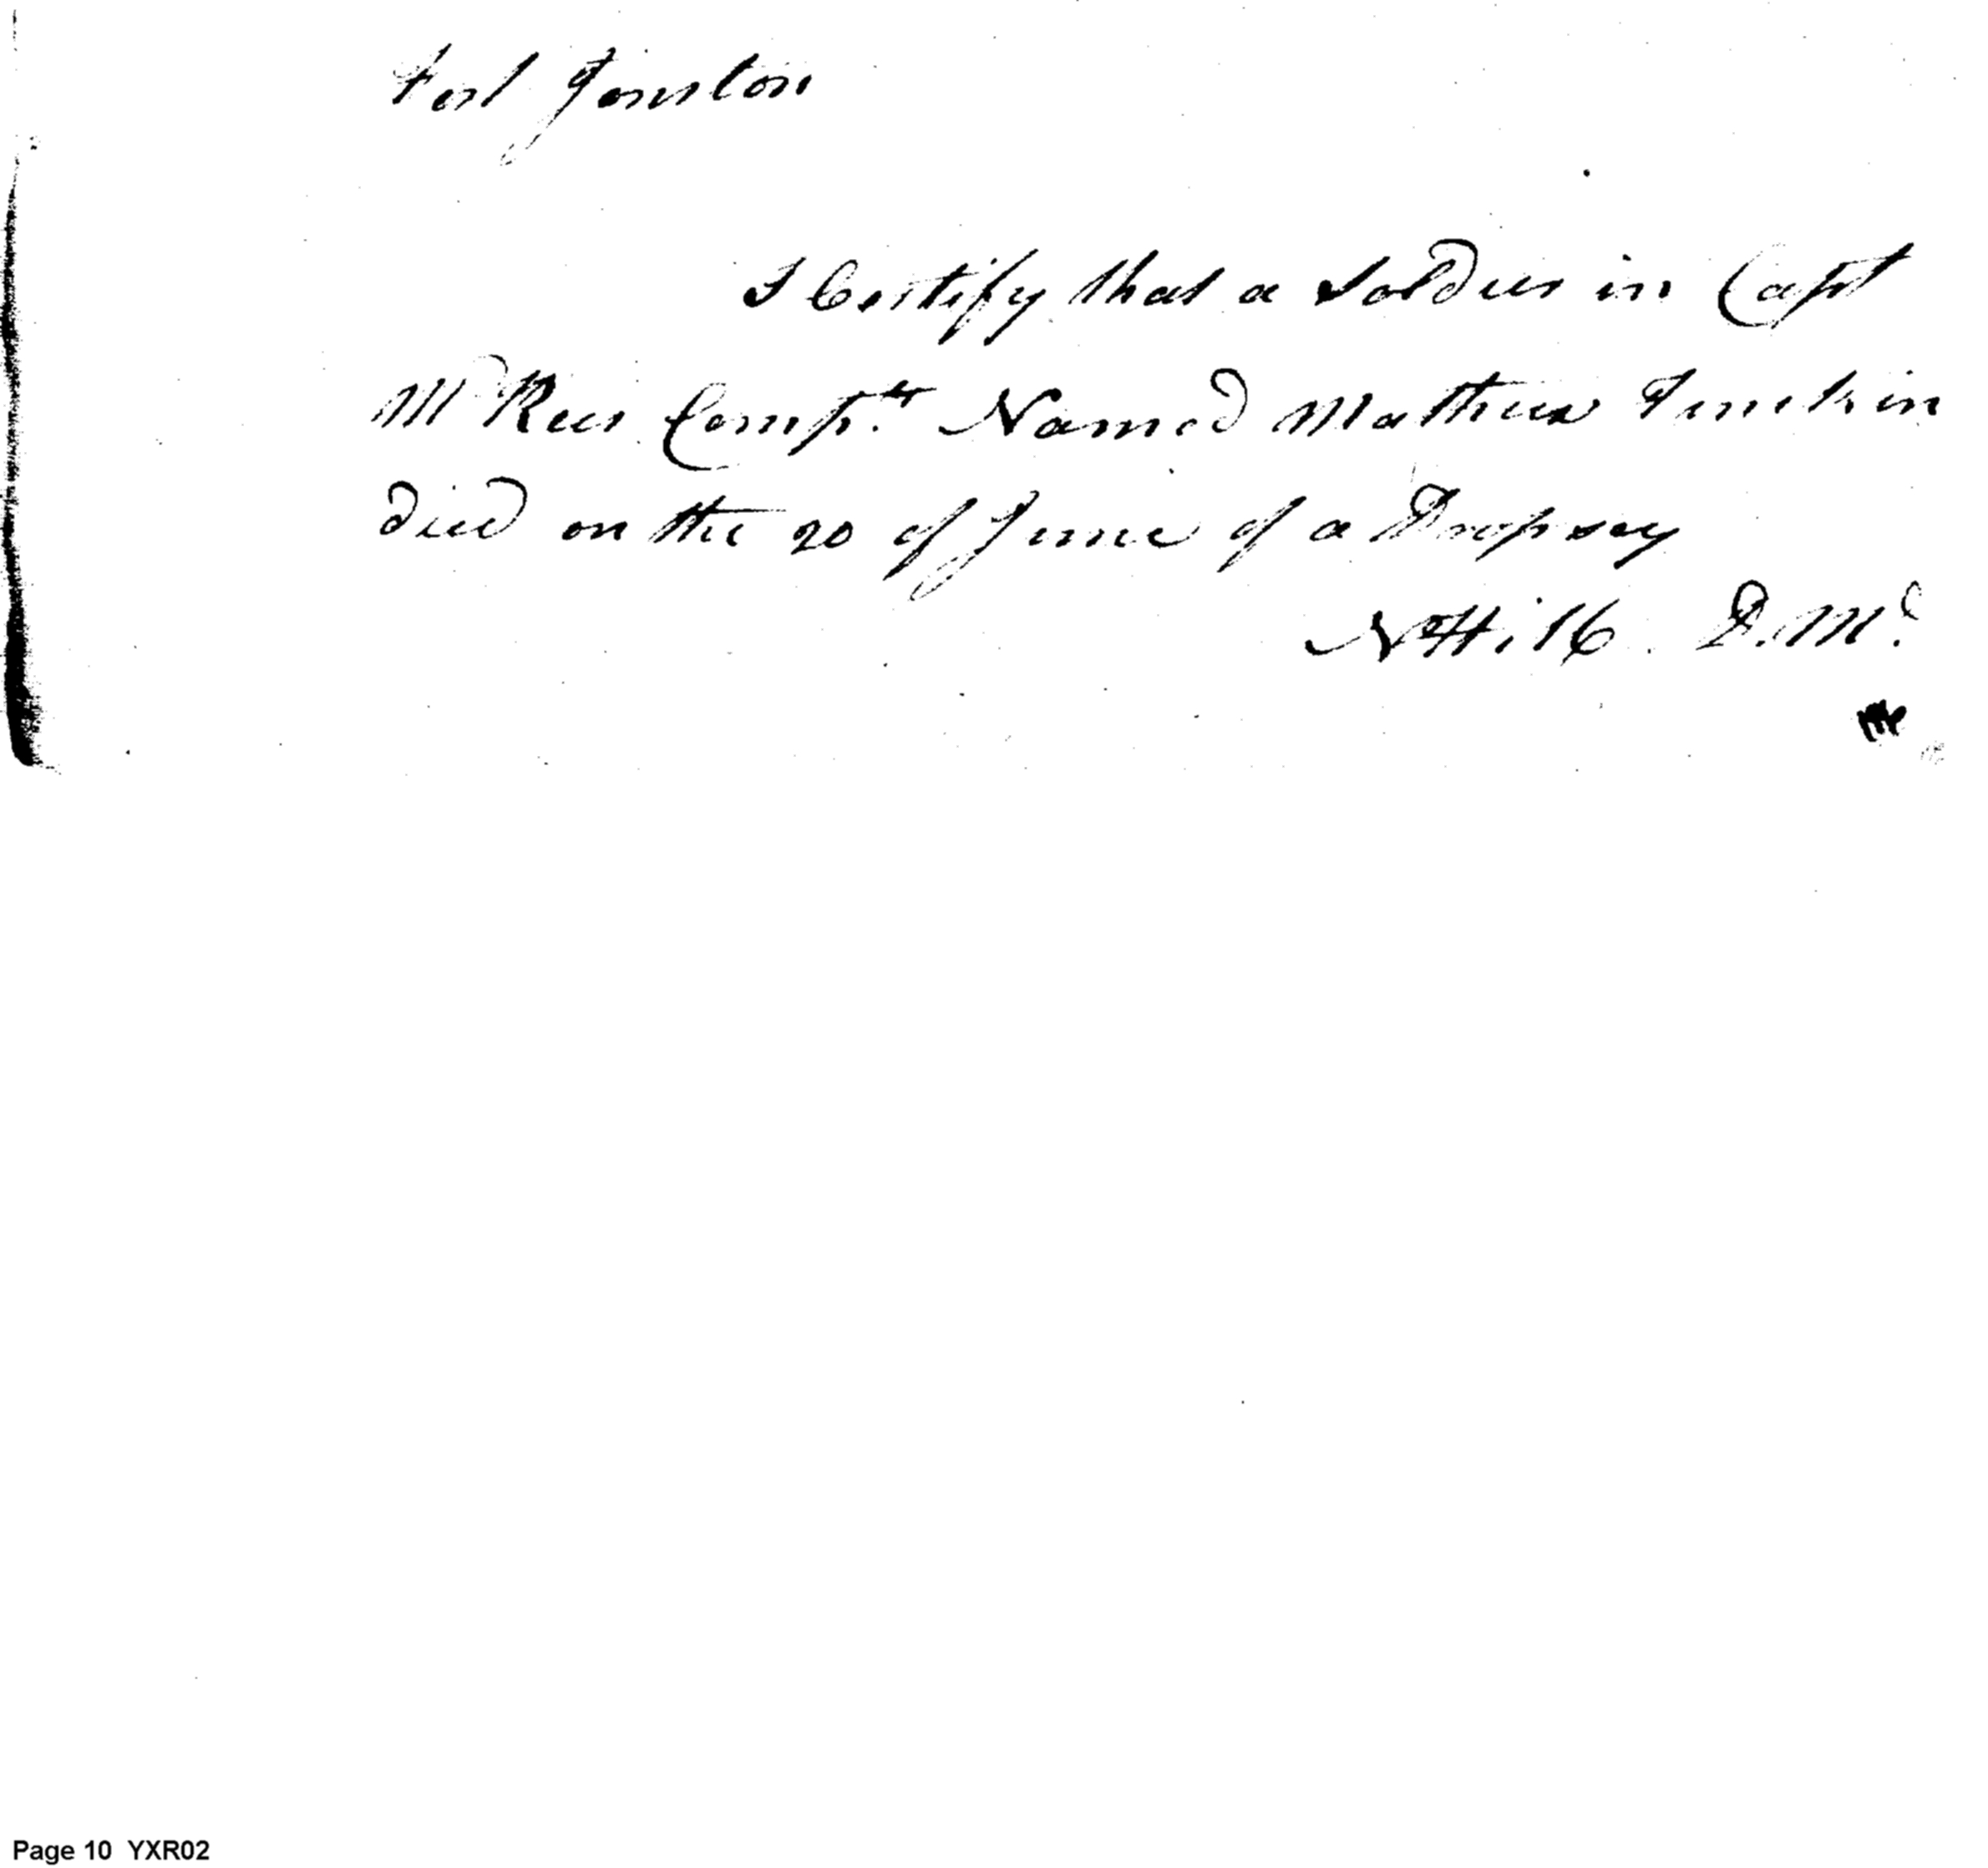 Fort Jonston
I Certify that a Soldier in Capt
McRees Compy Named Mathew
died on the 20 of June of a Dropsey
N Hill D. M.
Page 10 YXR02